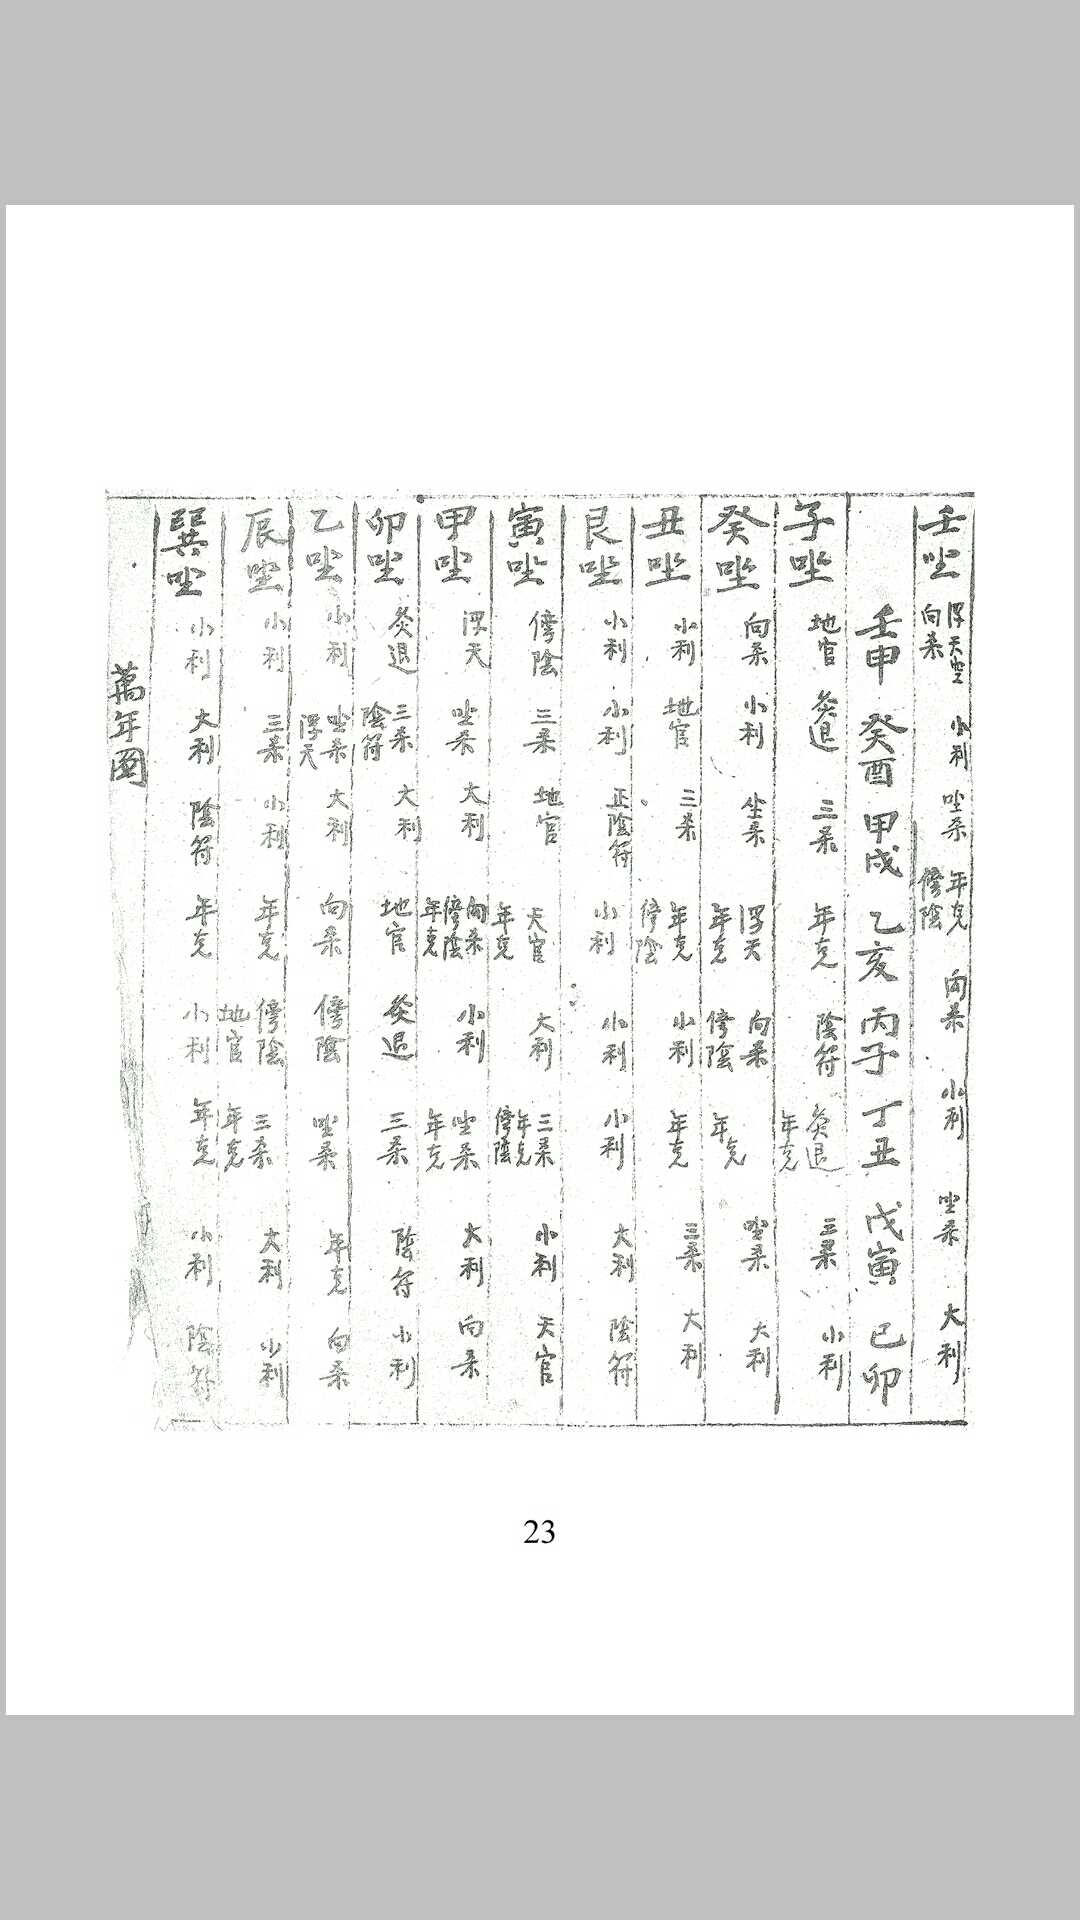 壬坐 浮天空 向杀 小利 坐杀 年克 傍陰 向杀 小利 坐杀 大利
壬申 癸酉 甲戌 乙亥 丙子 丁丑 戊寅 已卯
子坐 地官 灸退 三杀 年克 陰符 灸退 年克 三杀 小利
癸坐 向杀 小利 坐杀 浮天 年克 向杀 傍陰 年克 坐杀 大利
丑坐 小利 地官 三杀 年克 傍陰 小利 年克 三杀 大利
艮坐 小利 小利 正陰符 小利 小利 小利 大利 陰符
寅坐 傍陰 三杀 地官 天官 年克 大利 三杀 年克 傍陰 小利 天官
甲坐 浮天 坐杀 大利 向杀 傍陰 年克 小利 坐杀 年克 大利 向杀
卯坐 灸退 三杀 陰符 大利 地官 灸退 三杀 陰符 小利
乙坐 小利 坐杀 浮天 大利 向杀 傍陰 坐杀 年克 向杀
辰坐 小利 三杀 小利 年克 傍陰 地官 三杀 年克 大利 小利
巽坐 小利 大利 陰符 年克 小利 年克 小利 陰符
萬年圖
23